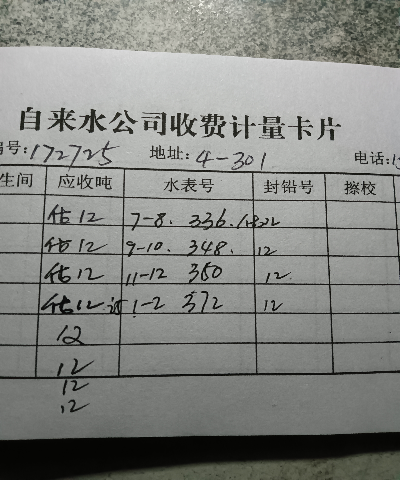 自来水公司收费计量卡片
编号:172725 地址:4-301 电话:
生间 应收吨 水表号 封铅号 擦校
估12 7-8. 336.
估12 9-10. 348. 12
估12 11-12 360 12
估12 1-2 372 12
12
12
12
12